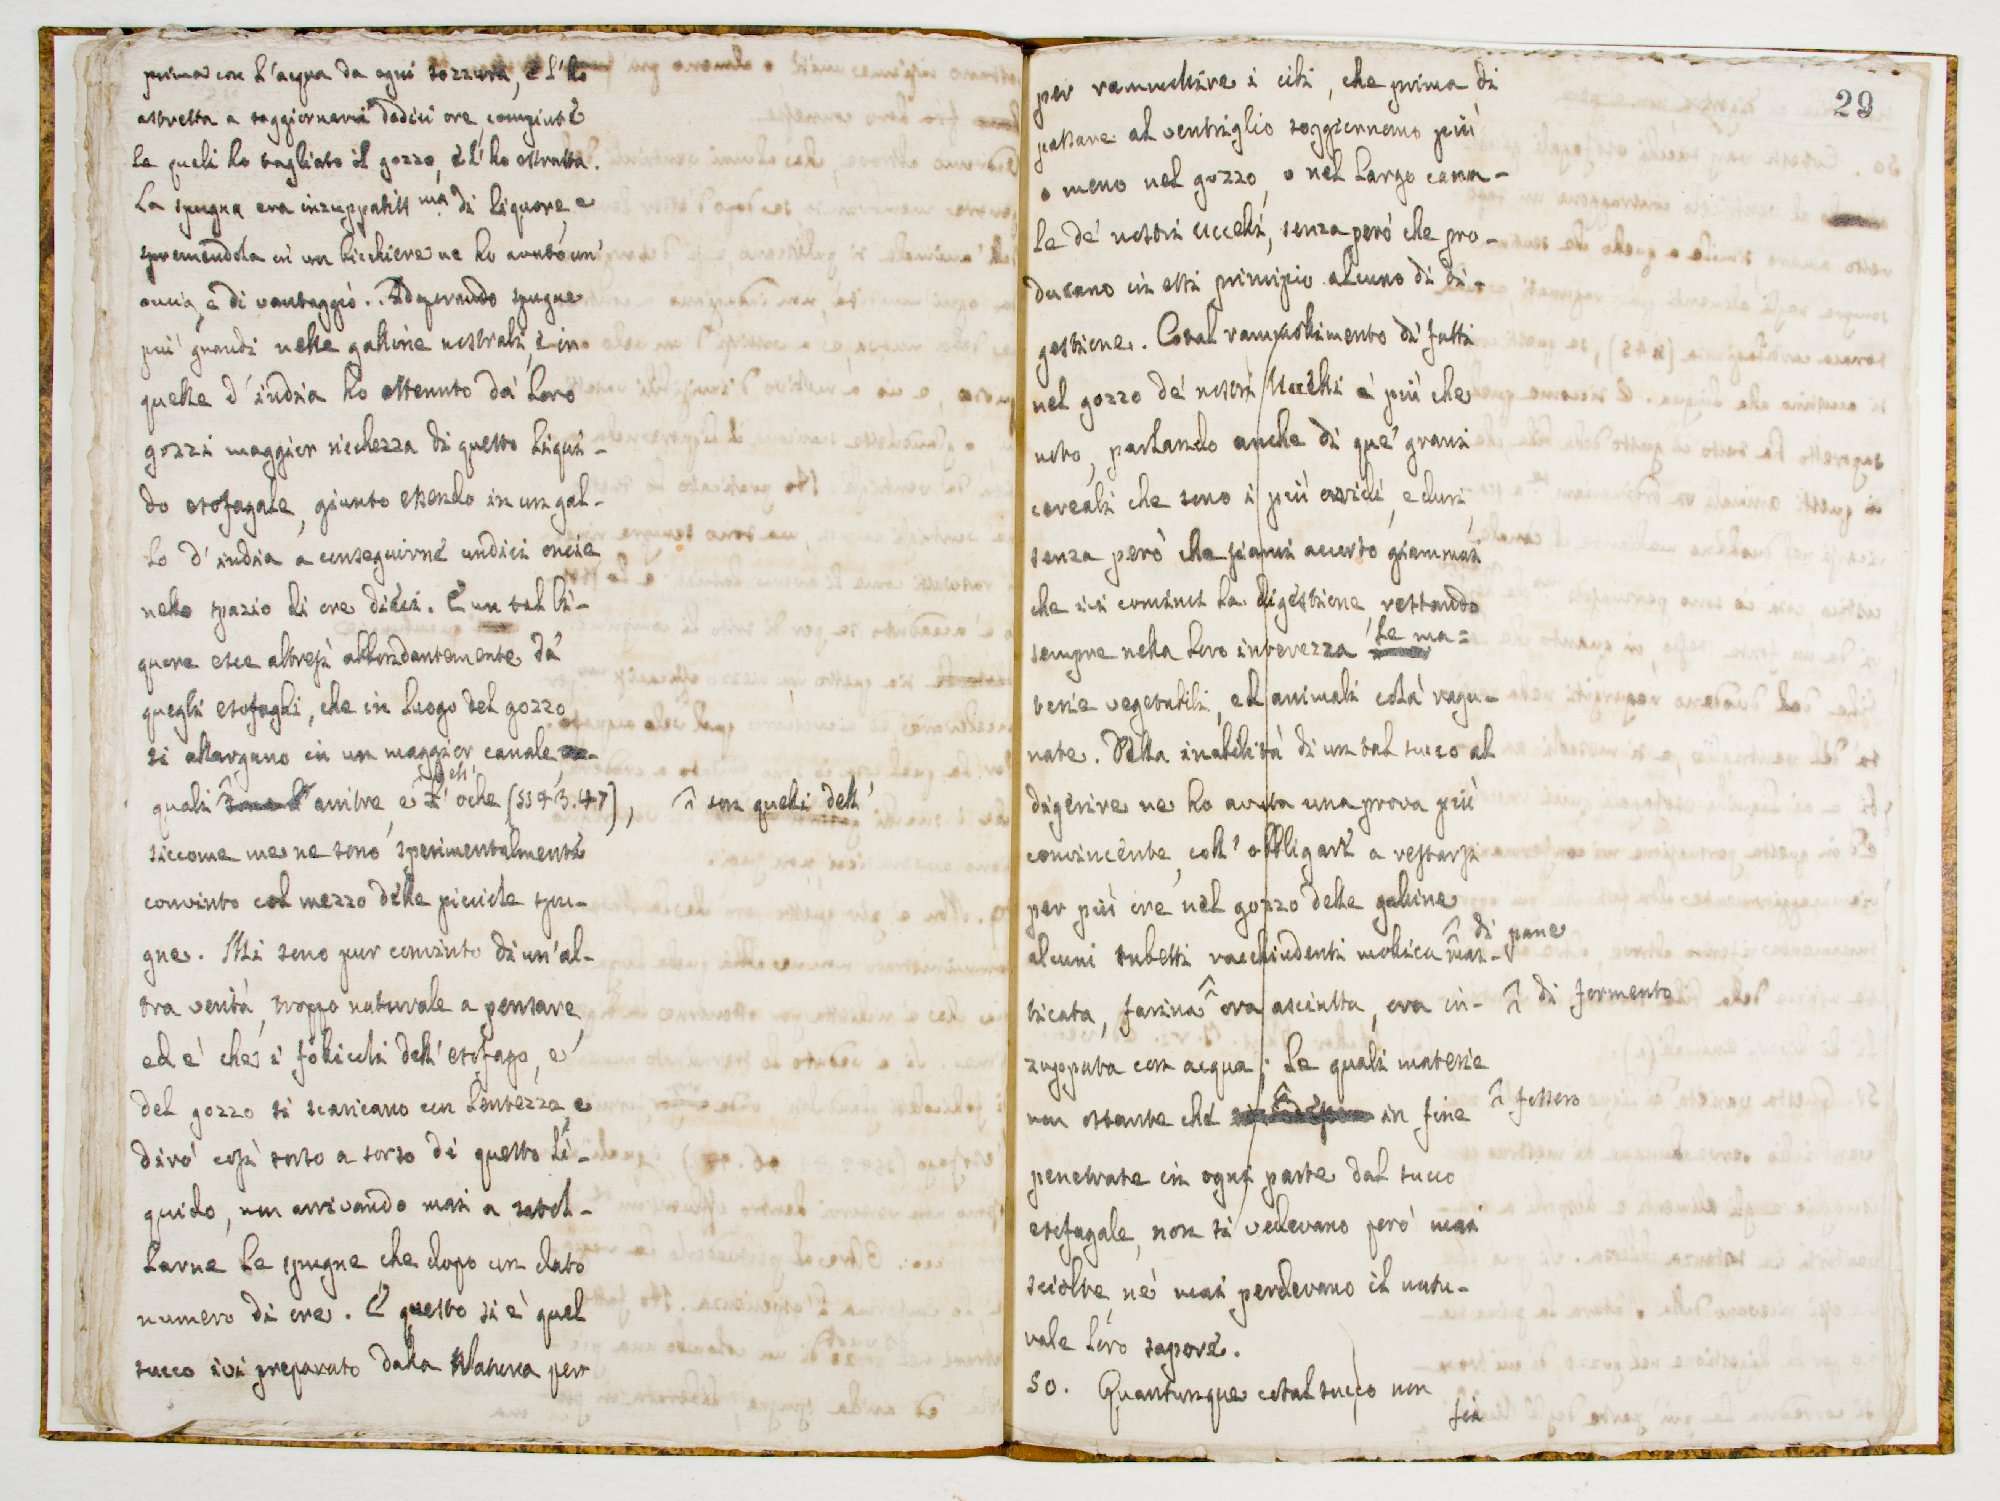 prima con l'acqua da ogni sozzura, e l'ho
astretta a soggiornarvi dodici ore, compiute
le quali ho tagliato il gozzo, e l'ho estratta.
La spugna era inzuppatissima di liquore, e
spremendola in un bicchiere ne ho avuto un'
oncia, e di vantaggio. Adoperando spugne
più grandi nelle galline nostrali, e in
quelle d'india ho ottenuto da' loro
gozzi maggior ricchezza di questo liqui-
do esofagale, giunto essendo in un gal-
lo d'india a conseguirne undici oncie
nello spazio di ore dieci. E un tal li-
quore esce altresì abbondantemente da'
quegli esofaghi, che in luogo del gozzo
si allargano in un maggior canale,
quali ^ anitre, e dell' oche (§§ 43. 47),
^ son quelli dell'
siccome me ne sono sperimentalmente
convinto col mezzo delle picciole spu-
gne. Mi sono pur convinto di un'al-
tra verità, troppo naturale a pensare,
ed è che i follicoli dell'esofago, e
del gozzo si scaricano con lentezza, e
dirò così sorso a sorso di questo li-
quido, non arrivando mai a satol-
larne le spugne che dopo un dato
numero di ore. E questo si è quel
succo ivi preparato dalla Natura per
29
per rammollire i cibi, che prima di
passare al ventriglio soggiornano più
o meno nel gozzo, o nel largo cana-
le de' nostri uccelli, senza però che pro-
ducano in essi principio alcuno di di-
gestione. Cotal rammollimento di fatti
nel gozzo de' nostri Uccelli è più che
noto, parlando anche di que' grani
cereali che sono i più aridi, e duri,
senza però che siami accorto giammai
che ivi cominci la digestione, restando
sempre nella loro interezza le ma=
terie vegetabili, ed animali colà ragu-
nate. Della inabilità di un tal succo al
digerire ne ho avuta una prova più
convincente, coll'obbligare a restarsi
per più ore nel gozzo delle galline
alcuni tubetti racchiudenti mollica ^ mas-
^ di pane
ticata, farina ^ ora asciutta, ora in-
^ di formento
zuppata con acqua; le quali materie
non ostante che ^ in fine
^ fossero
penetrate in ogni parte dal succo
esofagale, non si vedevano però mai
sciolte, nè mai perdevano il natu-
rale loro sapore.
50. Quantunque cotal succo non
sia